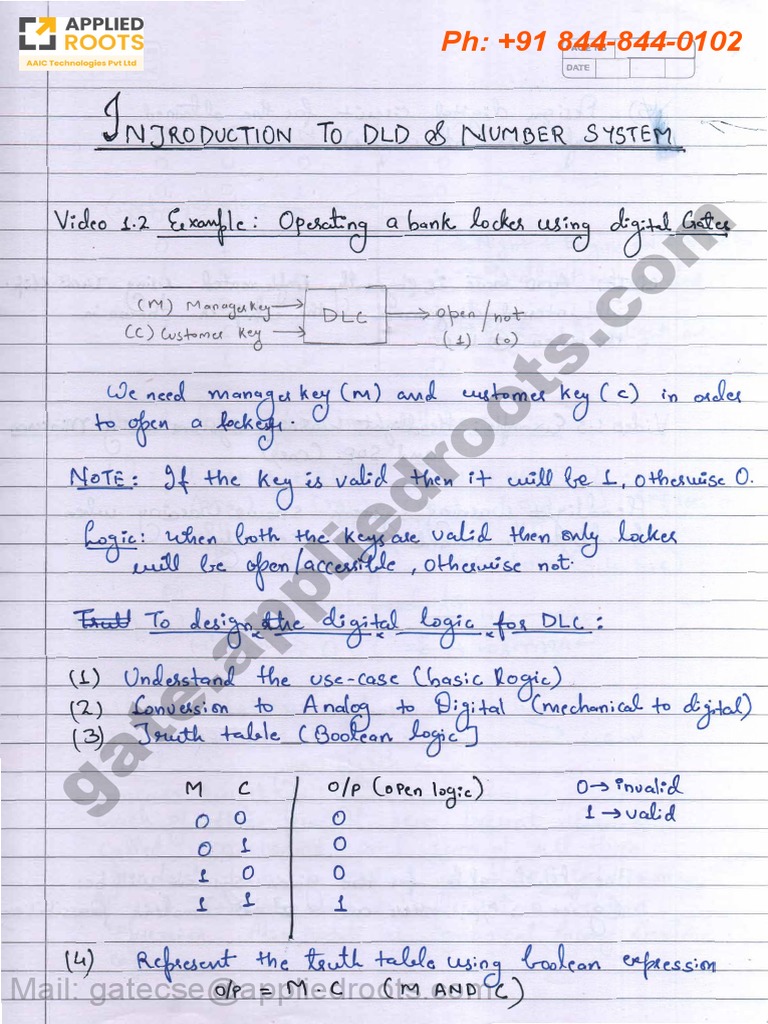 APPLIED
ROOTS
AAIC Technologies Pvt Ltd
Ph: +91 844-844-0102
DATE
INTRODUCTION TO DLD & NUMBER SYSTEM
Video 1.2 Example: Operating a bank locker using digital Gates
(M) Manager key → DLC → open/not
(C) Customer key → (1) (0)
We need manager key (M) and customer key (C) in order
to open a locker.
NOTE: If the key is valid then it will be 1, otherwise 0.
Logic: when both the keys are valid then only locker
will be open/accessible, otherwise not.
To design the digital logic for DLC:
(1) Understand the use-case (basic logic)
(2) Conversion to Analog to Digital (mechanical to digital)
(3) Truth table (Boolean logic)
M C O/P (open logic) 0→ invalid
0 0 0 1→ valid
0 1 0
1 0 0
1 1 1
(4) Represent the truth table using boolean expression
O/P = M·C (M AND C)
Mail: gatecse@appliedroots.com
gate.appliedroots.com